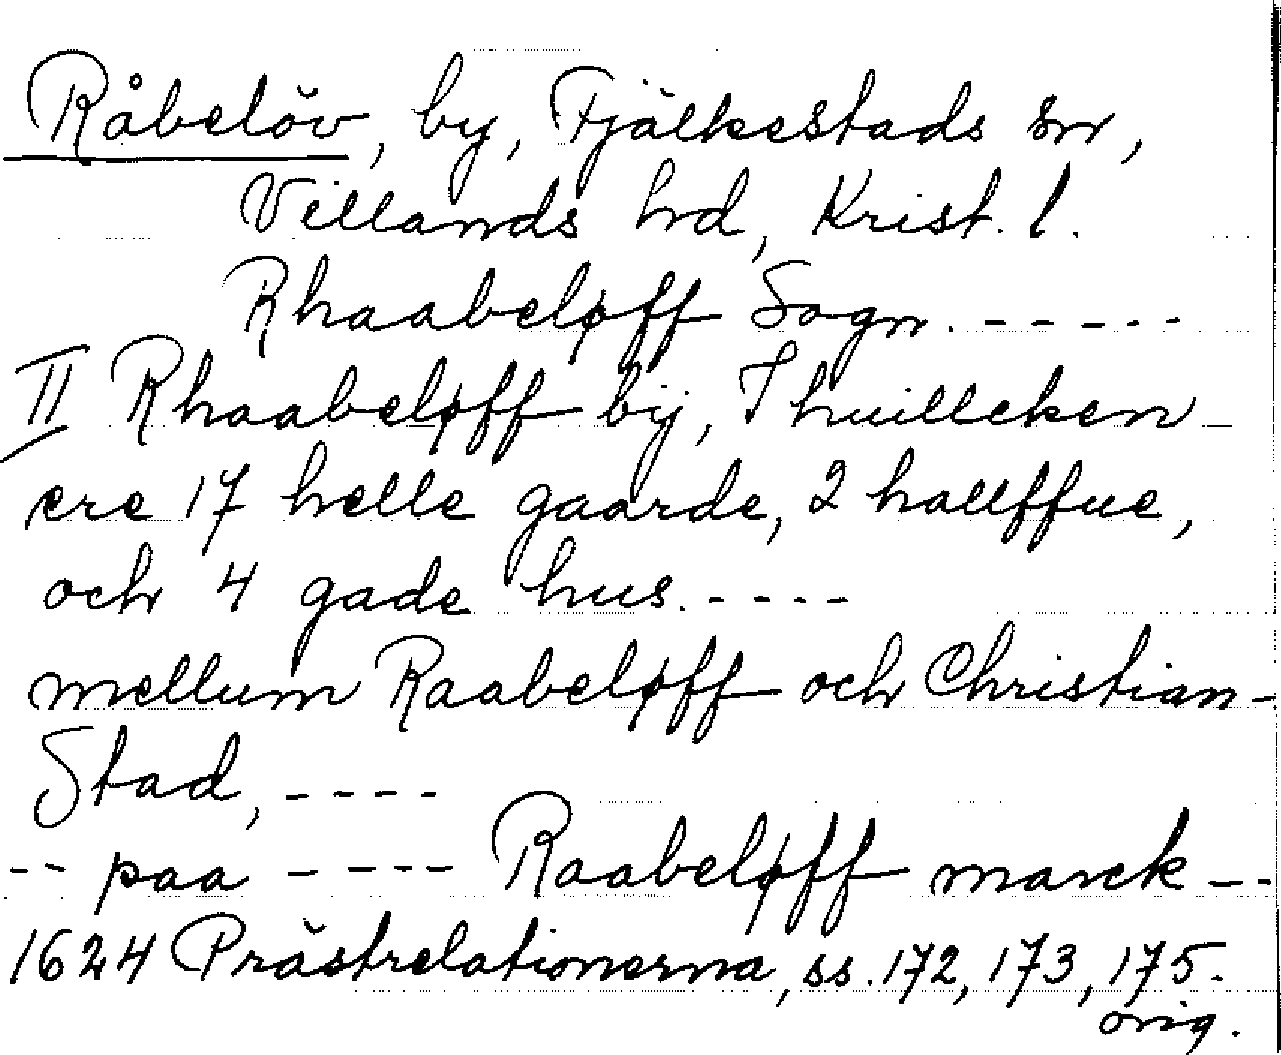 Råbelöv, by, Fjälkestads sn,
Villands hd, Krist. l.
Rhaabeløff Sogn. - - - - -
II Rhaabeløff bÿ, Thuillcken
ere 17 helle gaarde, 2 hallffue,
och 4 gade hus. - - - -
mellum Raabeløff och Christian-
Stad, - - - -
- - paa - - - - Raabeløff marck - -
1624 Prästrelationerna, ss. 172, 173, 175.
orig.